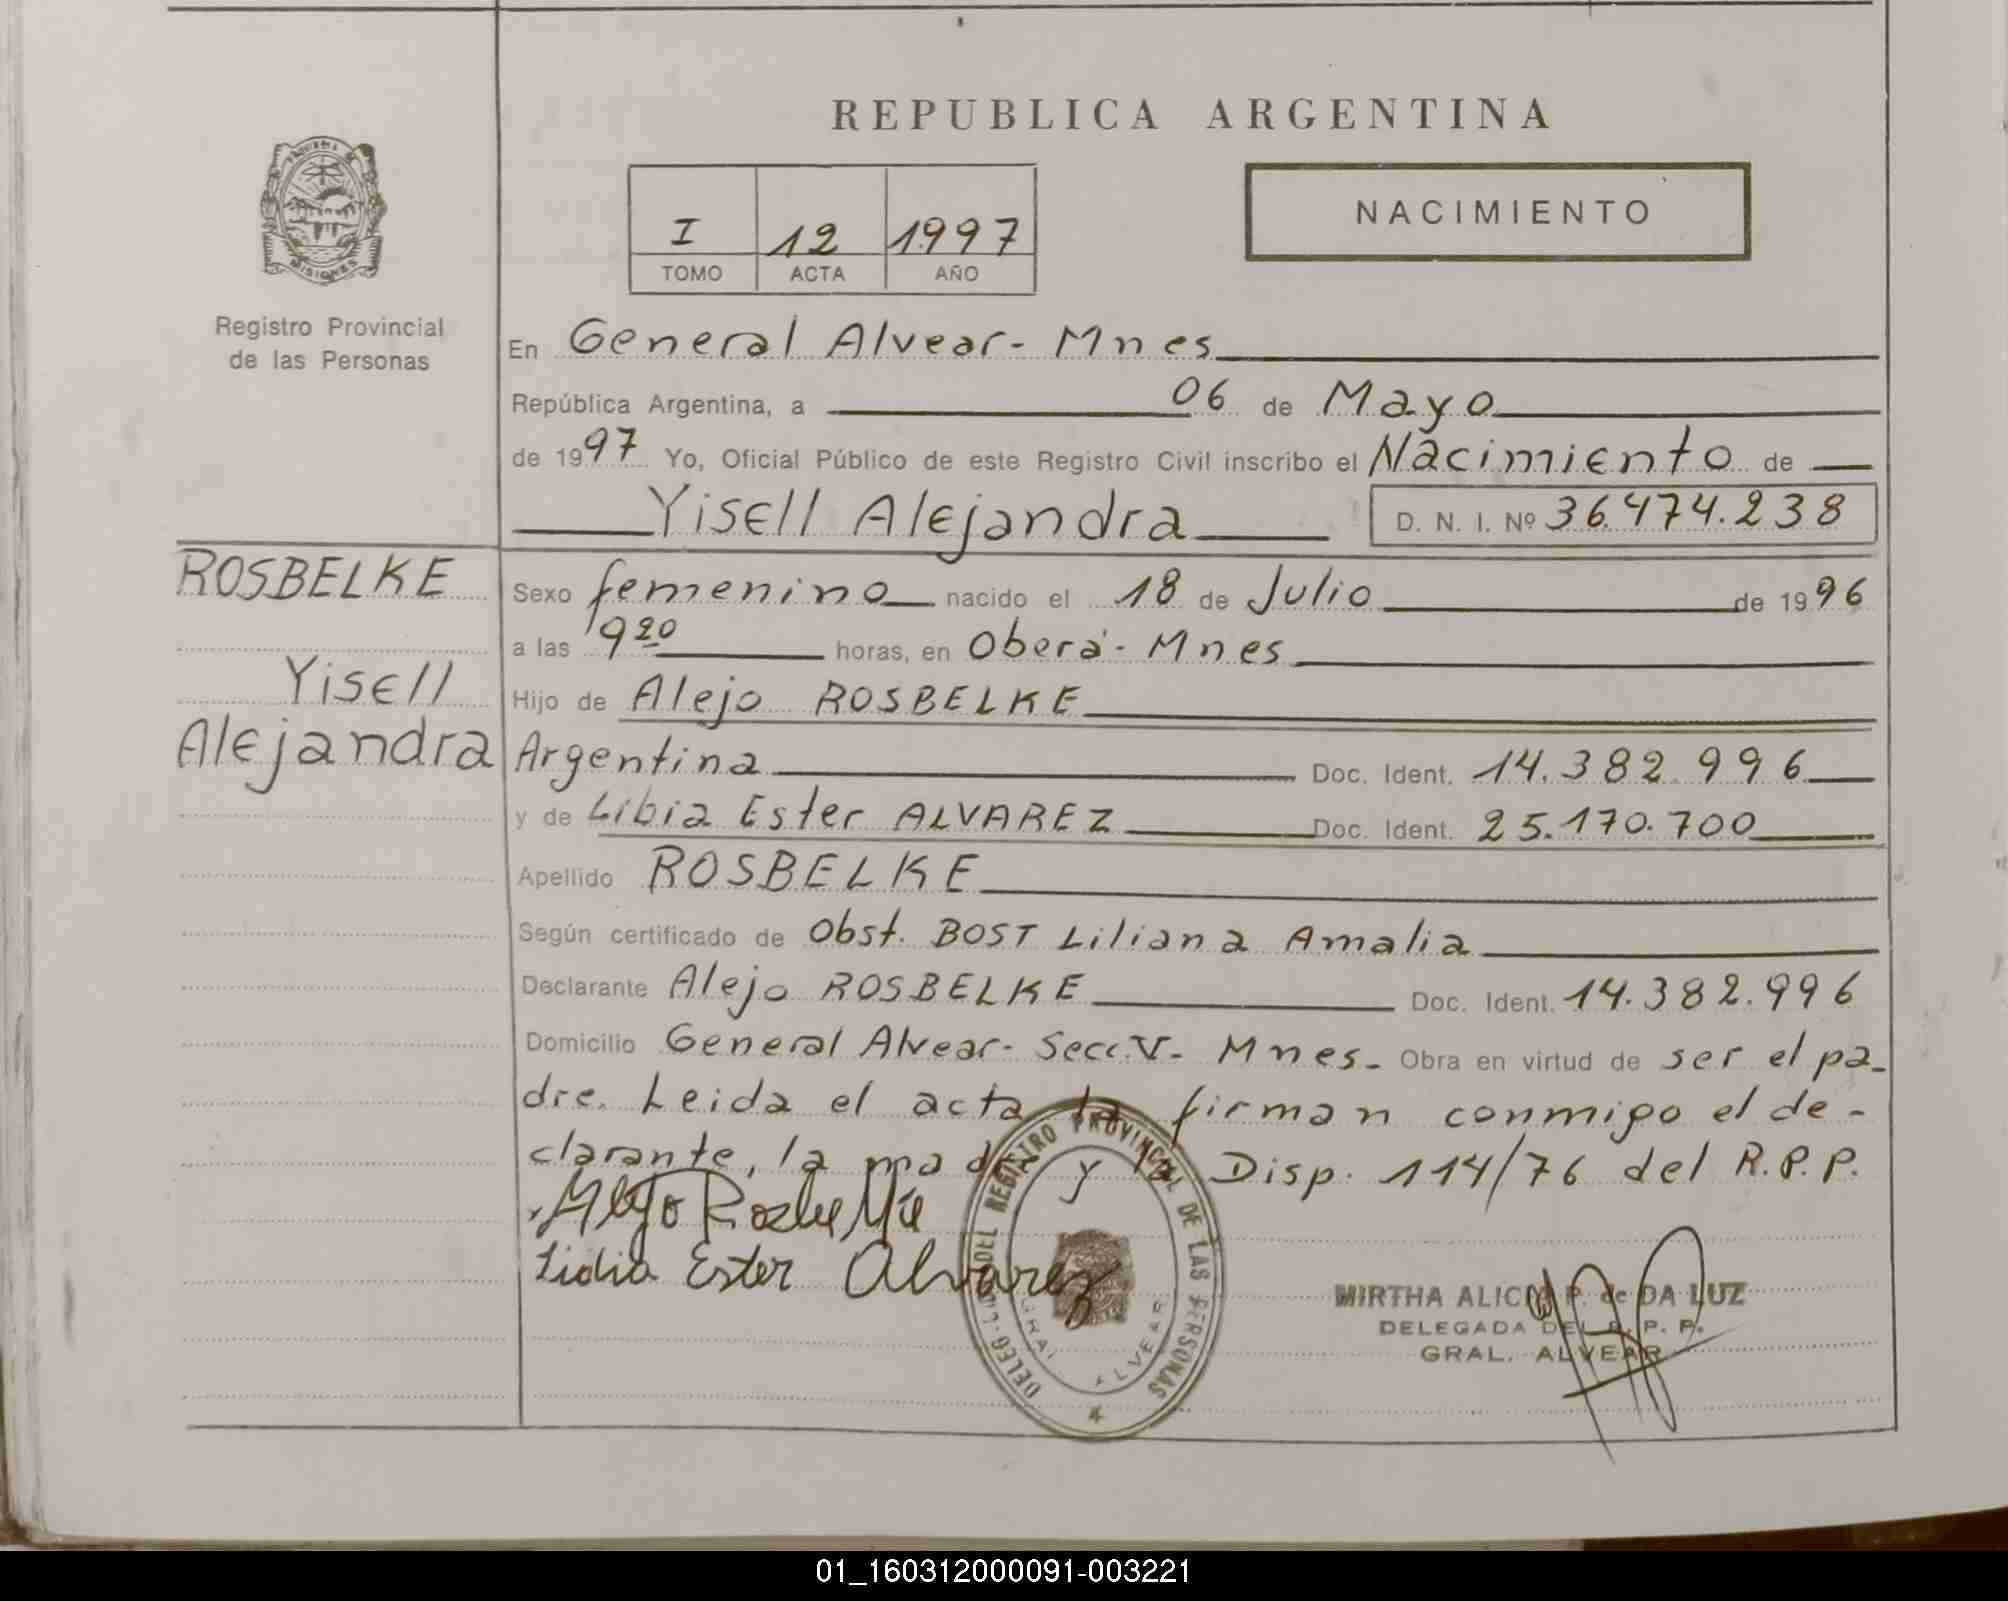 REPUBLICA ARGENTINA
MISIONES
Registro Provincial
de las Personas
I 12 1997
TOMO ACTA AÑO
NACIMIENTO
En General Alvear- Mnes
República Argentina, a 06 de Mayo
de 1997 Yo, Oficial Público de este Registro Civil inscribo el Nacimiento de
Yisell Alejandra D. N. I. Nº 36.474.238
ROSBELKE
Yisell
Alejandra
Sexo femenino nacido el 18 de Julio de 1996
a las 9 20 horas, en Oberá- Mnes
Hijo de Alejo ROSBELKE
Argentina Doc. Ident. 14.382.996
y de Libia Ester ALVAREZ Doc. Ident. 25.170.700
Apellido ROSBELKE
Según certificado de Obst. BOST Liliana Amalia
Declarante Alejo ROSBELKE Doc. Ident. 14.382.996
Domicilio General Alvear- Secc.V- Mnes- Obra en virtud de ser el pa-
dre. Leida el acta la firman conmigo el de-
clarante, la madre y la Disp. 114/76 del R.P.P.
Alejo Rosbelke
Lidia Ester Alvarez
DELEG. DEL REGISTRO PROVINCIAL DE LAS PERSONAS
GRAL ALVEAR
MIRTHA ALICIA P. de DA LUZ
DELEGADA DEL R. P. P.
GRAL. ALVEAR
01_160312000091-003221